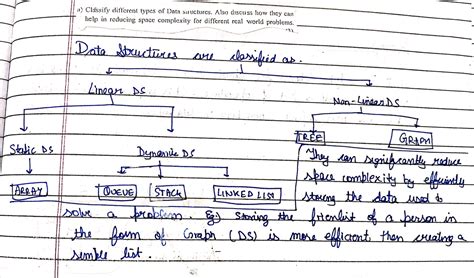 a) Classify different types of Data structures. Also discuss how they can
help in reducing space complexity for different real world problems.
Data Structures are classified as -
Linear DS
Non-Linear DS
Static DS
Dynamic DS
TREE
GRAPH
ARRAY
QUEUE
STACK
LINKED LIST
They can significantly reduce
space complexity by efficiently
storing the data used to
solve a problem. Eg:) Storing the friendlist of a person in
the form of Graph (DS) is more efficient then creating a
simple list.